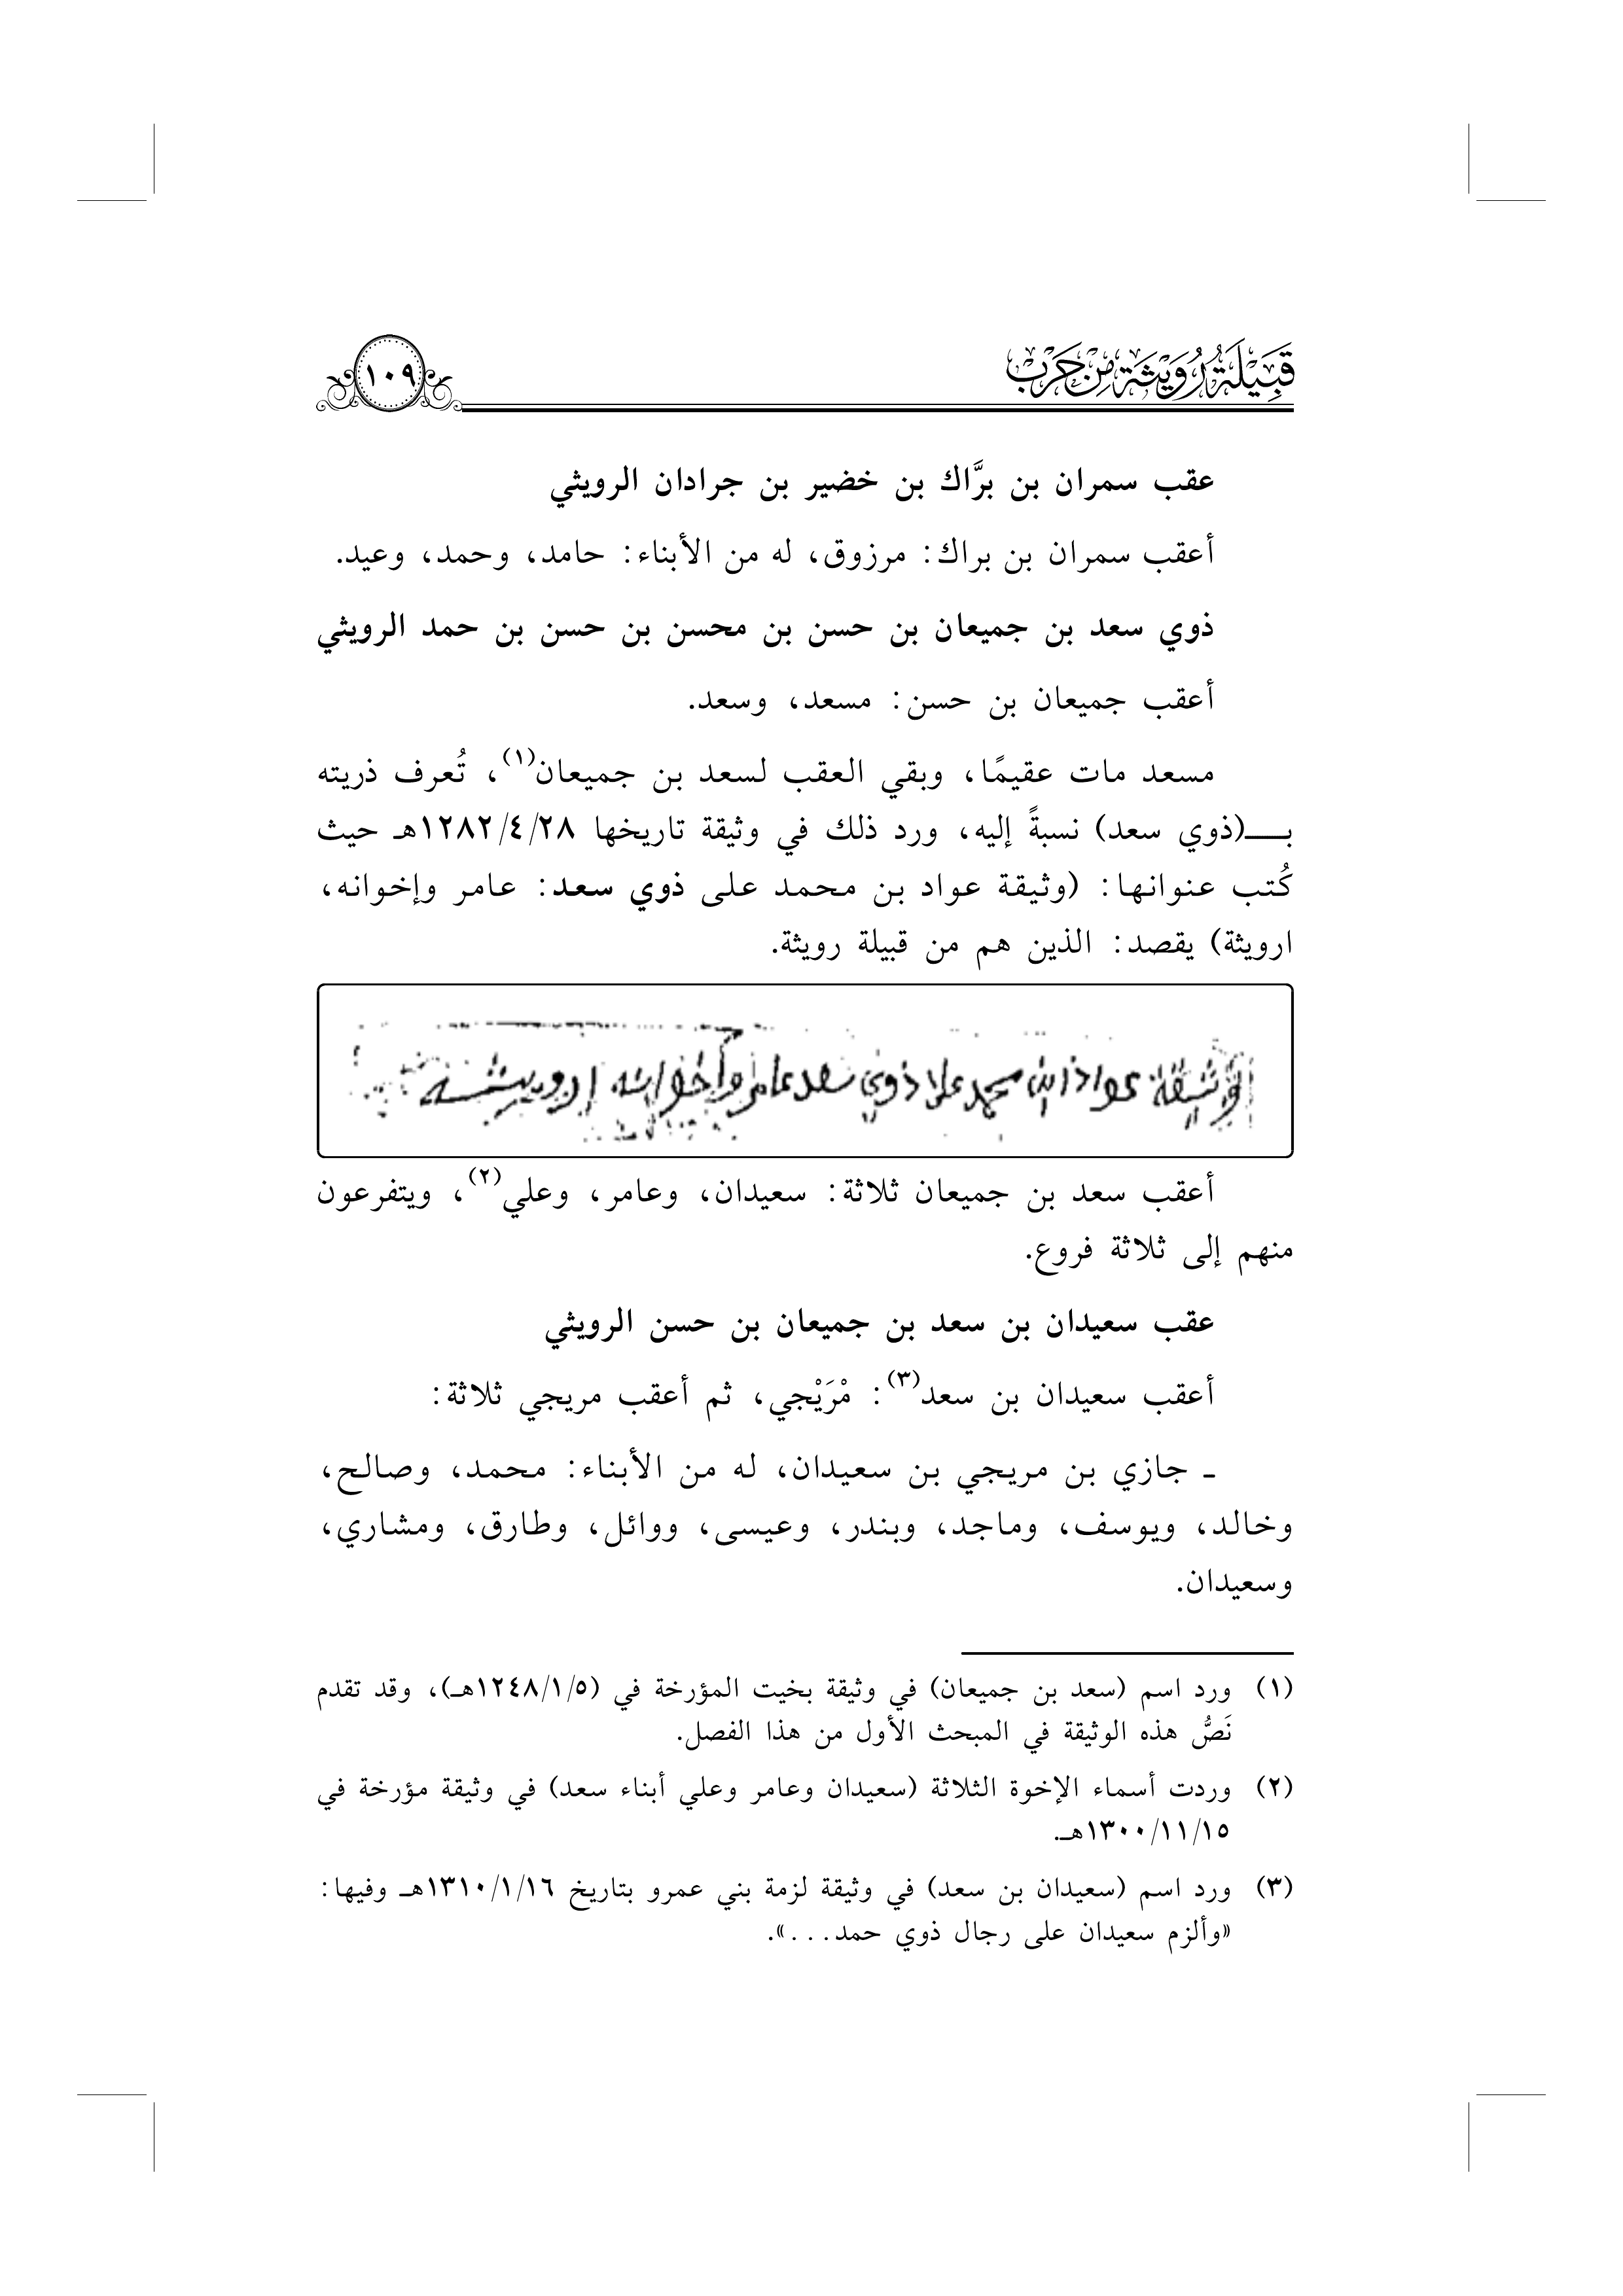 قَبِيلَةُ رُوَيْثَة مِنْ حَرْب
١٠٩
عقب سمران بن برَّاك بن خضير بن جرادان الرويثي
أعقب سمران بن براك: مرزوق، له من الأبناء: حامد، وحمد، وعيد.
ذوي سعد بن جميعان بن حسن بن محسن بن حسن بن حمد الرويثي
أعقب جميعان بن حسن: مسعد، وسعد.
مسعد مات عقيمًا، وبقي العقب لسعد بن جميعان(١)، تُعرف ذريته
بـ(ذوي سعد) نسبةً إليه، ورد ذلك في وثيقة تاريخها ١٢٨٢/٤/٢٨هـ حيث
كُتب عنوانها: (وثيقة عواد بن محمد على ذوي سعد: عامر وإخوانه،
ارويثة) يقصد: الذين هم من قبيلة رويثة.
الوثيقة عواد ابن محمد علا ذوي سعد عامر واخوانه ارويثه
أعقب سعد بن جميعان ثلاثة: سعيدان، وعامر، وعلي(٢)، ويتفرعون
منهم إلى ثلاثة فروع.
عقب سعيدان بن سعد بن جميعان بن حسن الرويثي
أعقب سعيدان بن سعد(٣): مْرَيْجي، ثم أعقب مريجي ثلاثة:
ـ جازي بن مريجي بن سعيدان، له من الأبناء: محمد، وصالح،
وخالد، ويوسف، وماجد، وبندر، وعيسى، ووائل، وطارق، ومشاري،
وسعيدان.
(١) ورد اسم (سعد بن جميعان) في وثيقة بخيت المؤرخة في (١٢٤٨/١/٥هـ)، وقد تقدم
نَصُّ هذه الوثيقة في المبحث الأول من هذا الفصل.
(٢) وردت أسماء الإخوة الثلاثة (سعيدان وعامر وعلي أبناء سعد) في وثيقة مؤرخة في
١٣٠٠/١١/١٥هـ.
(٣) ورد اسم (سعيدان بن سعد) في وثيقة لزمة بني عمرو بتاريخ ١٣١٠/١/١٦هـ وفيها:
«وألزم سعيدان على رجال ذوي حمد...».